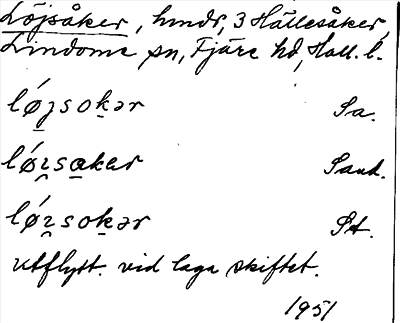 Löjsåker, hmdr, 3 Hällesåker,
Lindome sn, Fjäre hd, Hall. l.
lǿjsokər Sa.
lǿısaker Sand.
lǿısokər St.
utflytt. vid laga skiftet.
1951